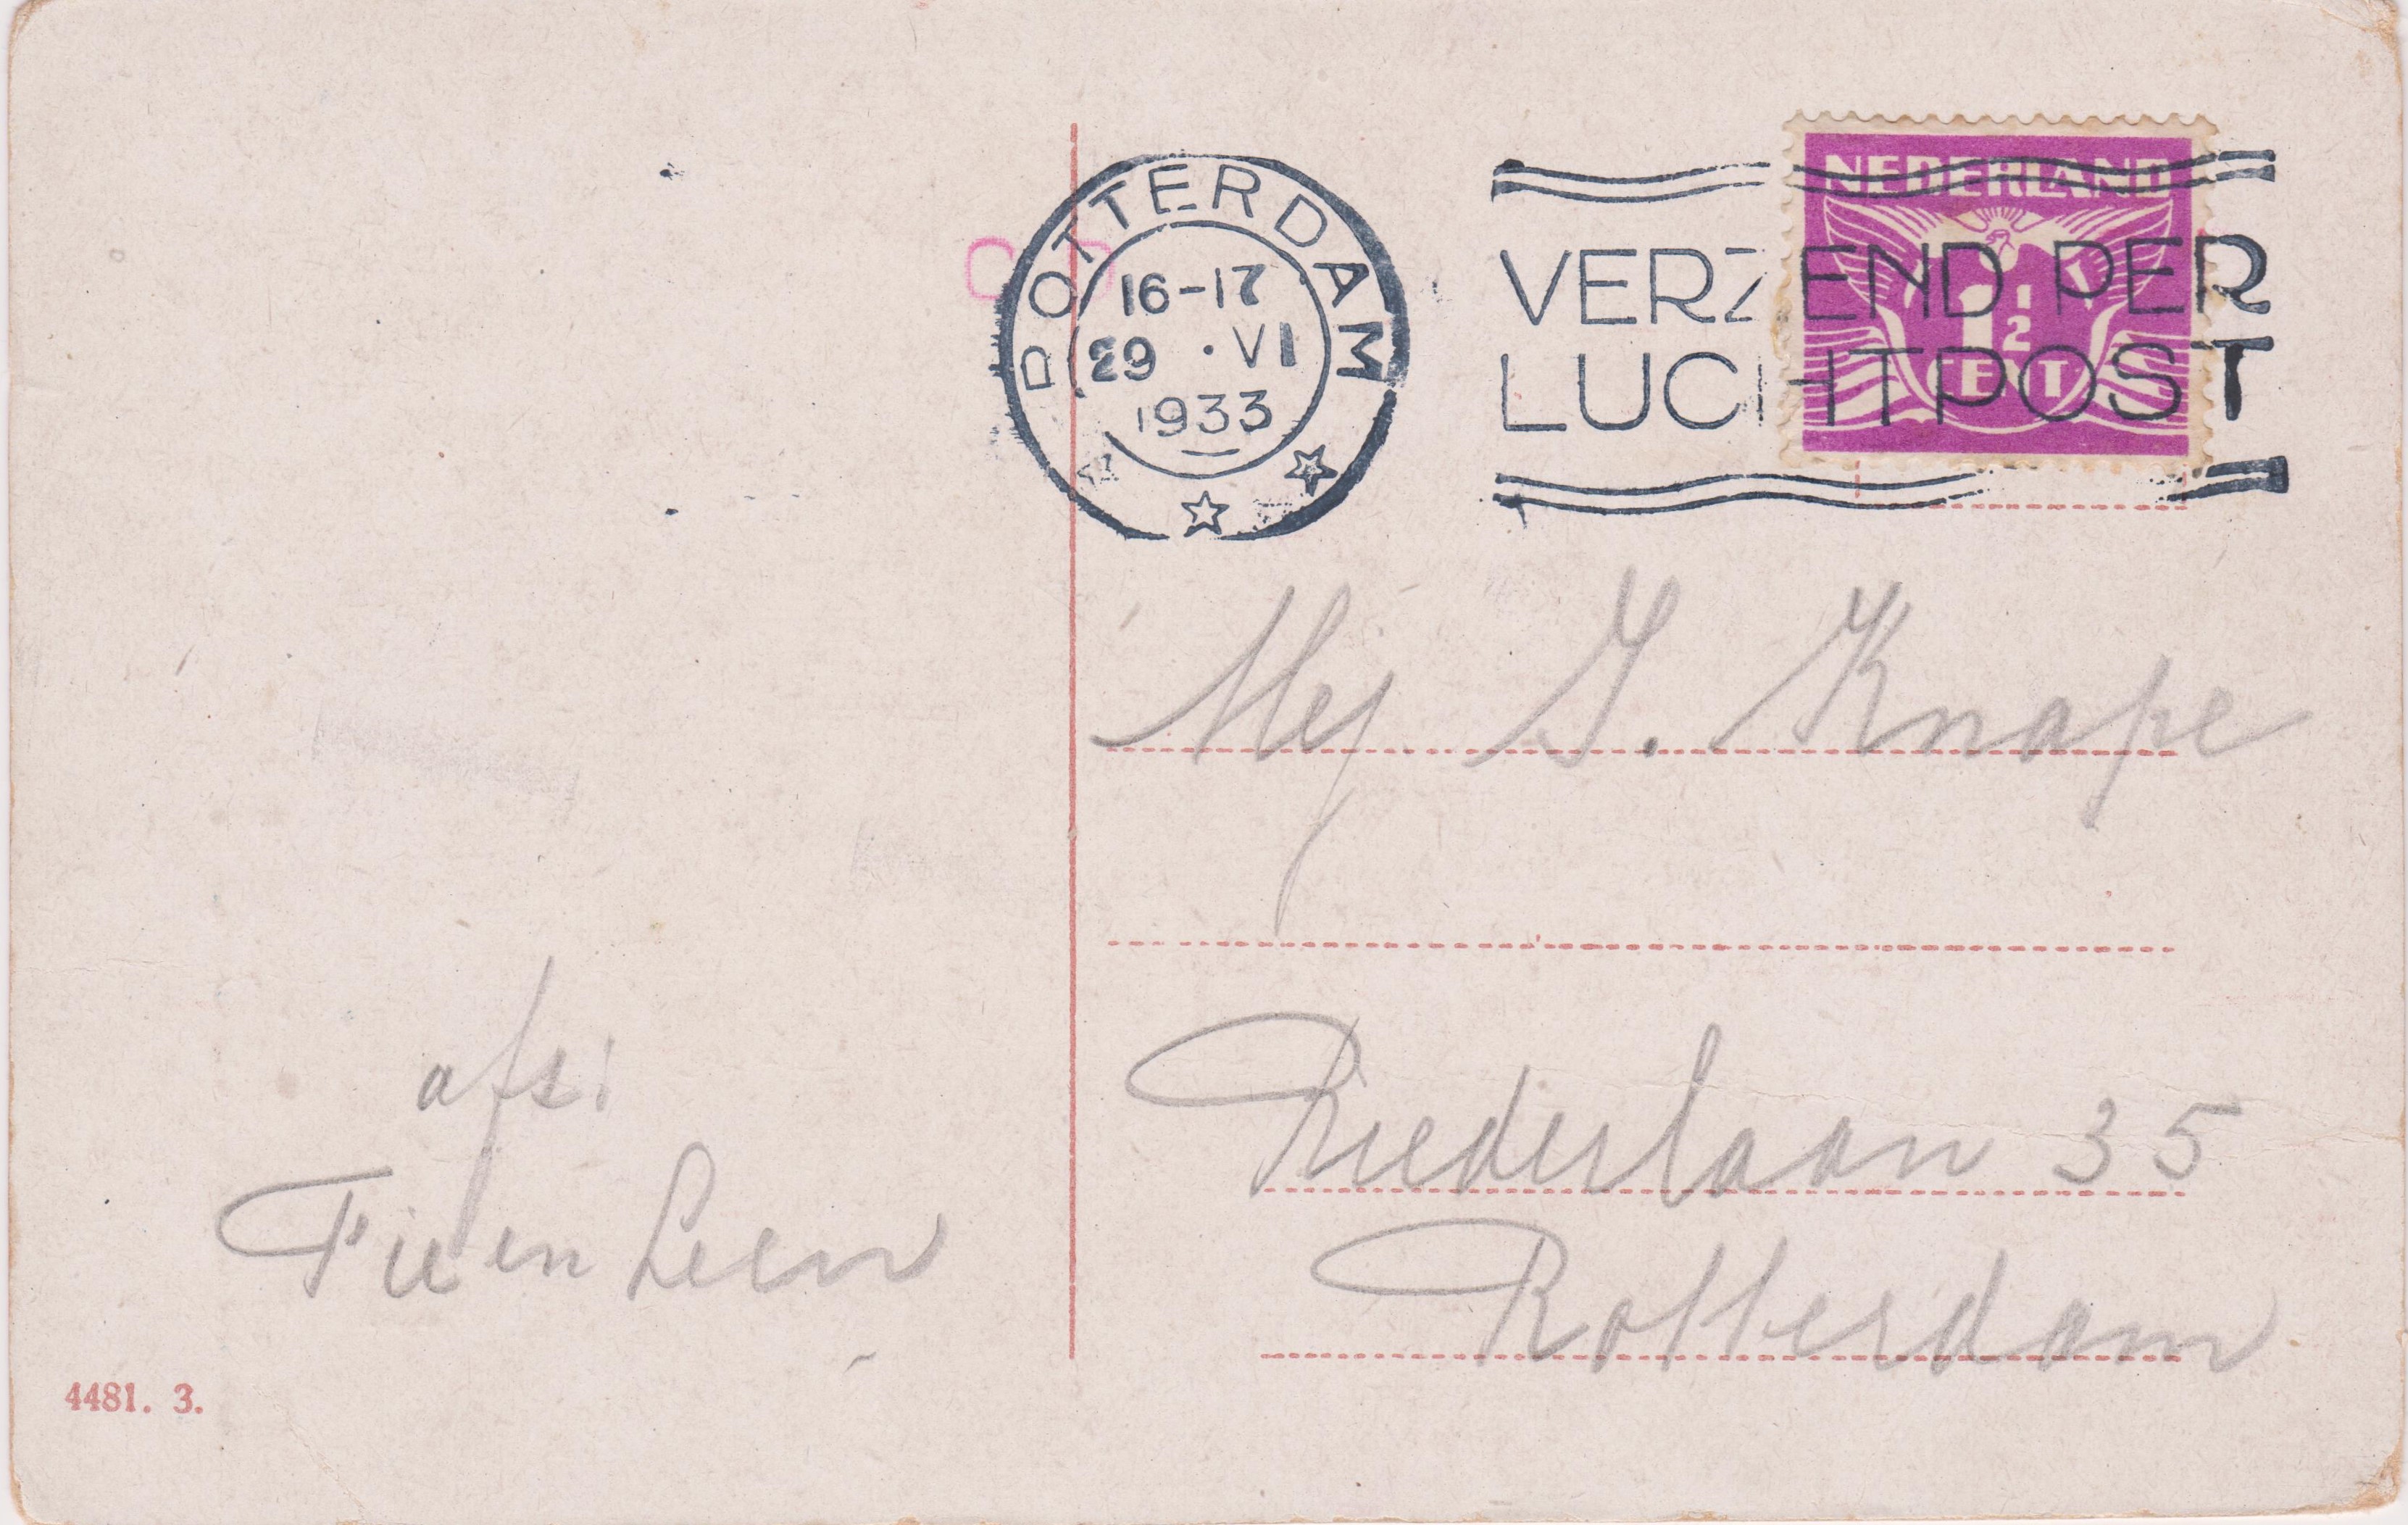 ROTTERDAM
16-17
29 .VI
1933
VERZEND PER
LUCHTPOST
NEDERLAND
1 1/2
CENT
Mej J. Knape
Riederlaan 35
Rotterdam
afs:
Fie en Leen
4481. 3.